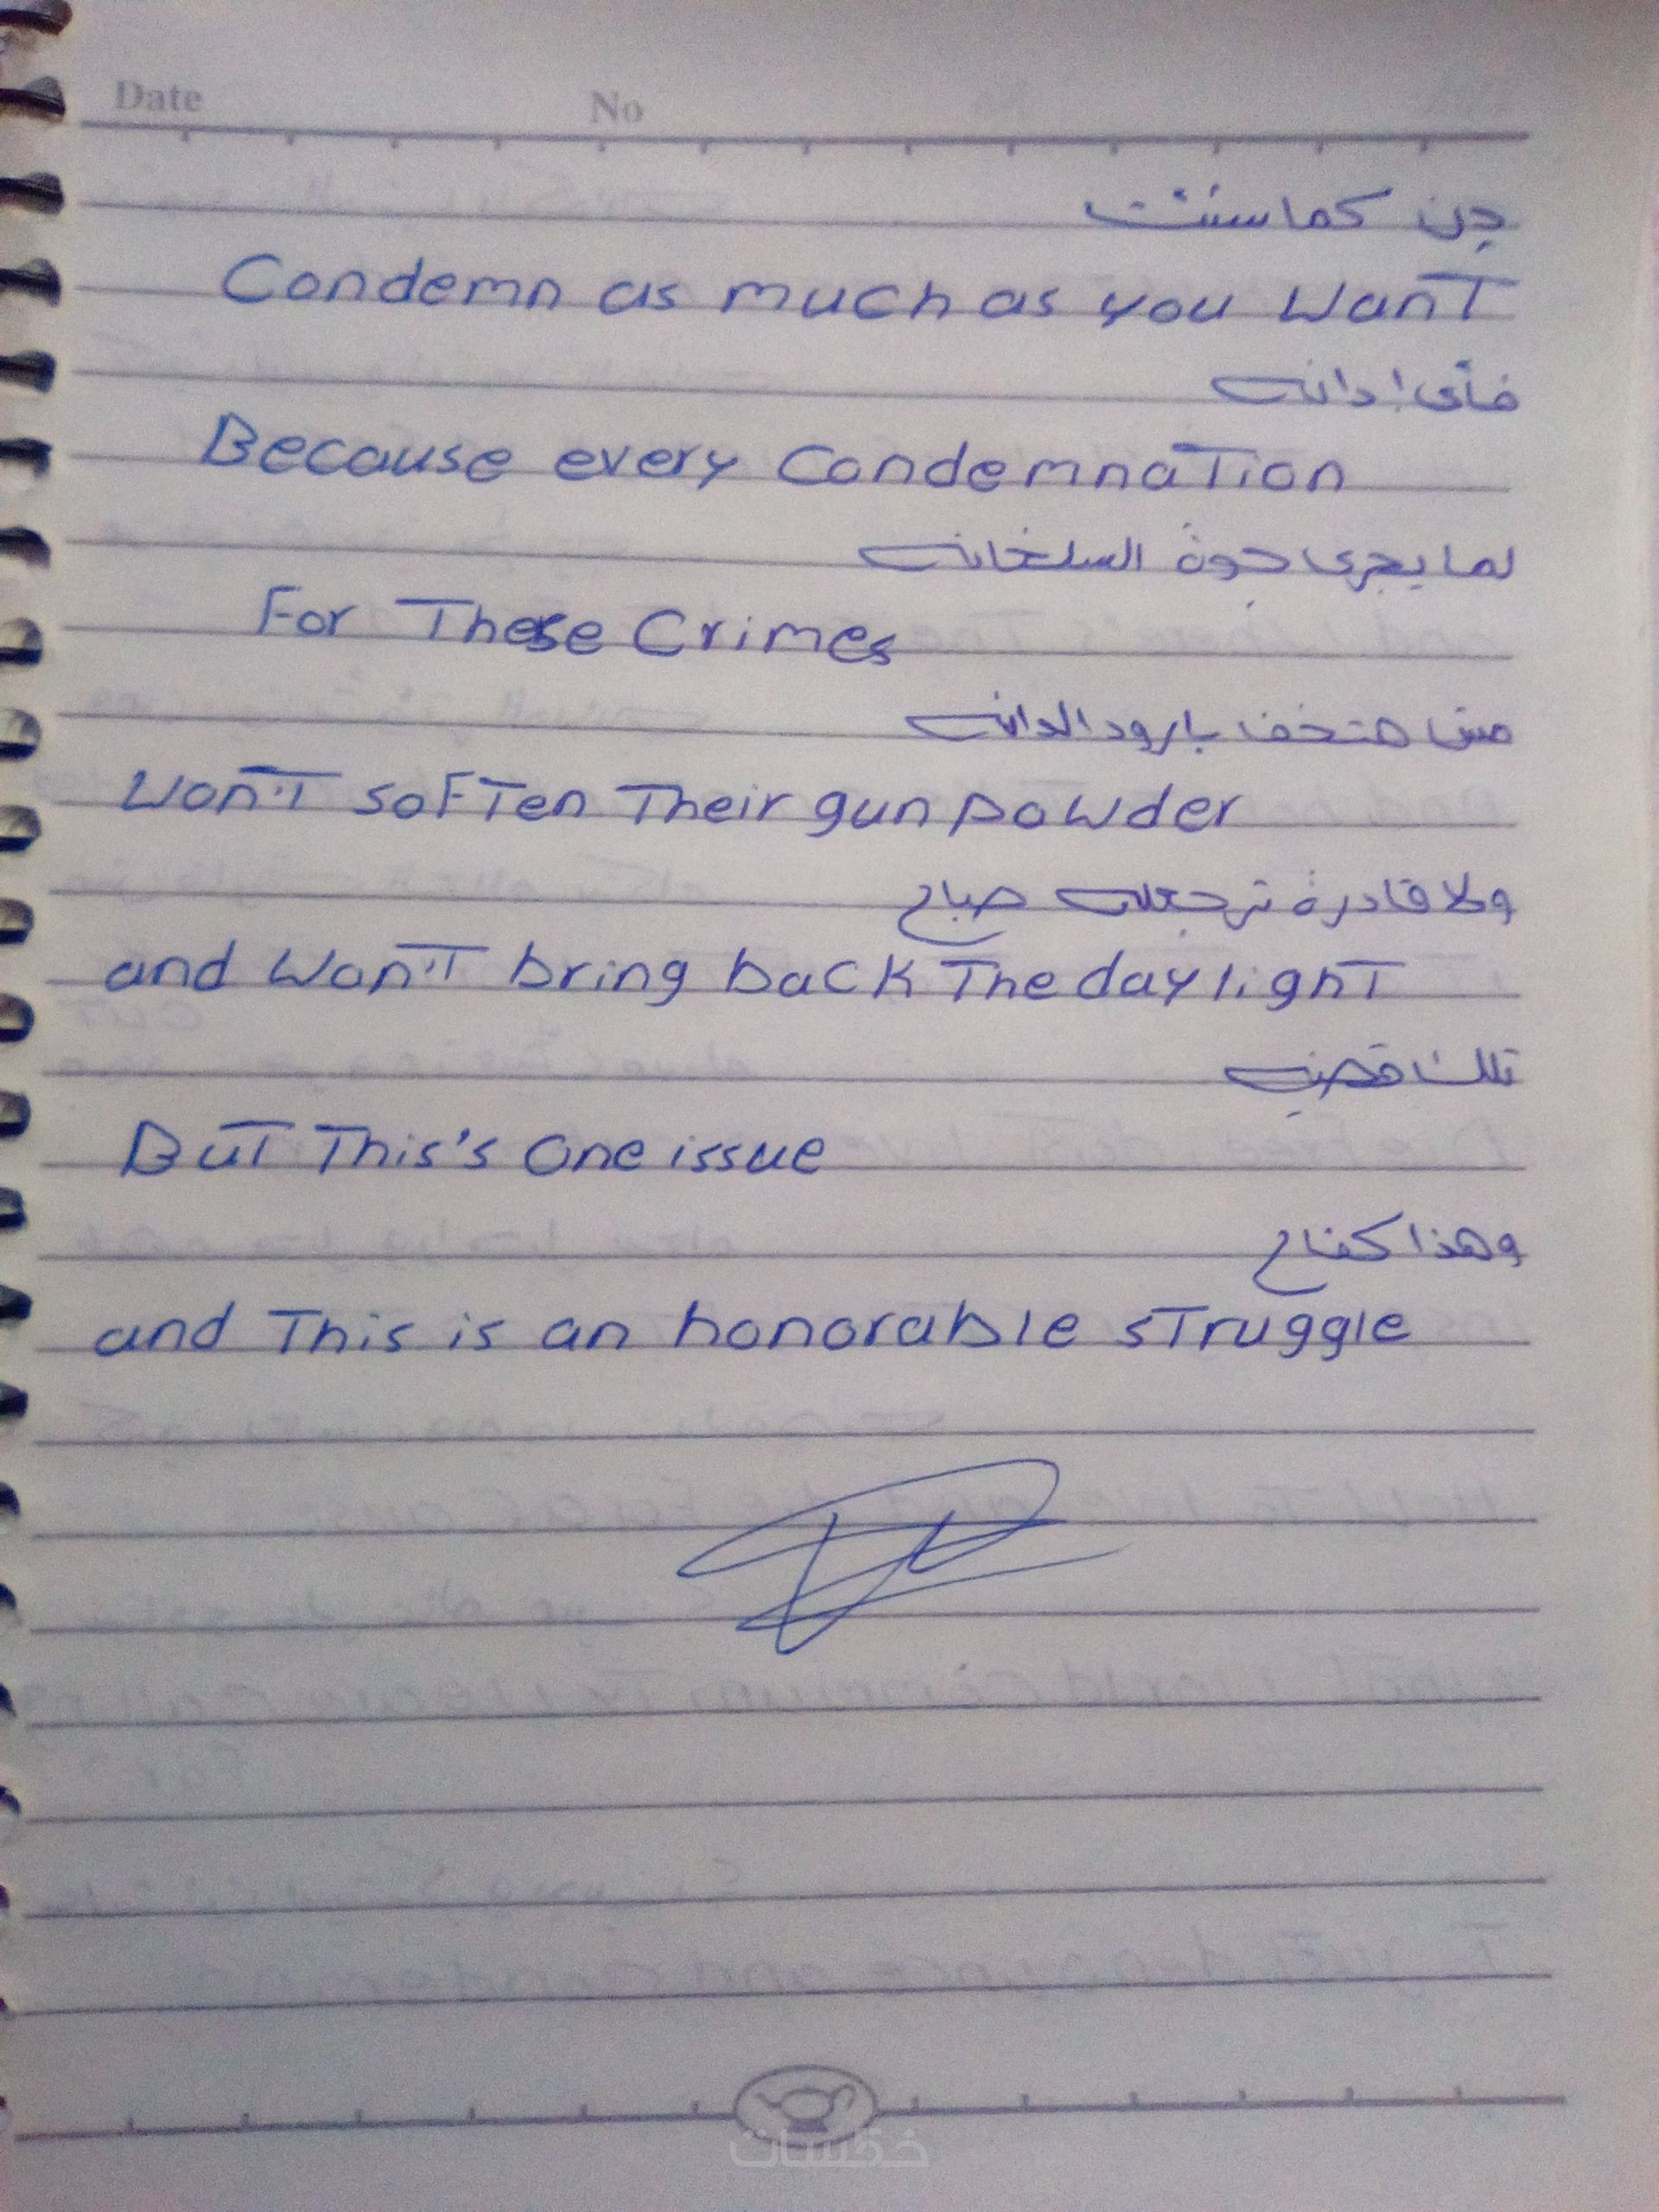 Date No
دن كما شئت
Condemn as much as you want
فأى إدانه
Because every condemnation
لما يجرى جوة السلخانه
For These Crimes
مش هتخف بارود الدانه
Won't soften Their gun powder
ولا قادرة ترجعله صباح
and won't bring back The day light
تلك قضيه
But This's one issue
وهذا كفاح
and This is an honorable struggle
خمسات